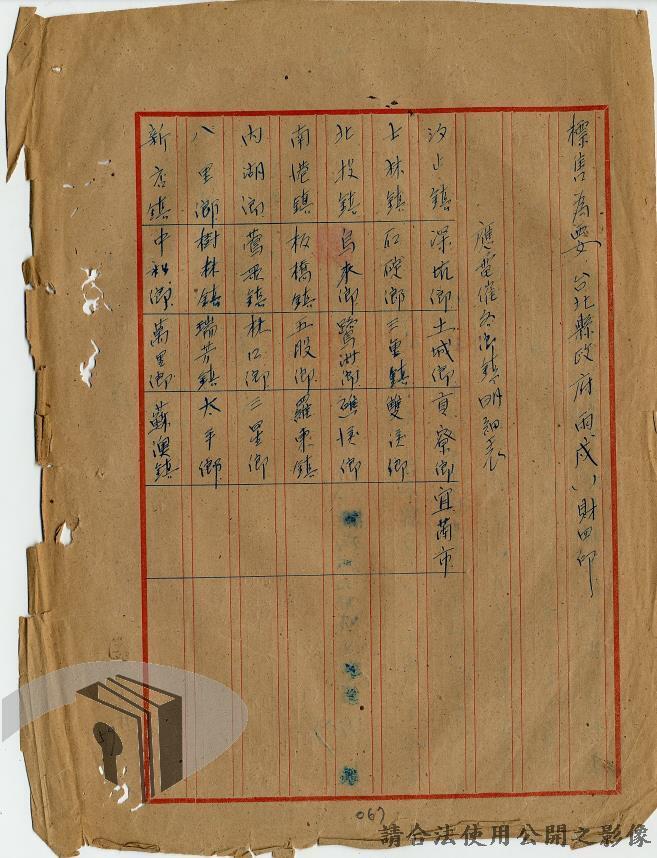 標售為要 台北縣政府雨戌八財四印
應電催各鄉鎮明細表
汐止鎮 深坑鄉 土城鄉 貢寮鄉 宜蘭市
士林鎮 石碇鄉 三重鎮 雙溪鄉
北投鎮 烏來鄉 鷺洲鄉 礁溪鄉
南港鎮 板橋鎮 五股鄉 羅東鎮
內湖鄉 鶯歌鎮 林口鄉 三星鄉
八里鄉 樹林鎮 瑞芳鎮 太平鄉
新店鎮 中和鄉 萬里鄉 蘇澳鎮
067
請合法使用公開之影像